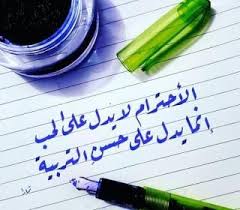 الأحترام لا يدل على الحب
إنما يدل على حسن التربية